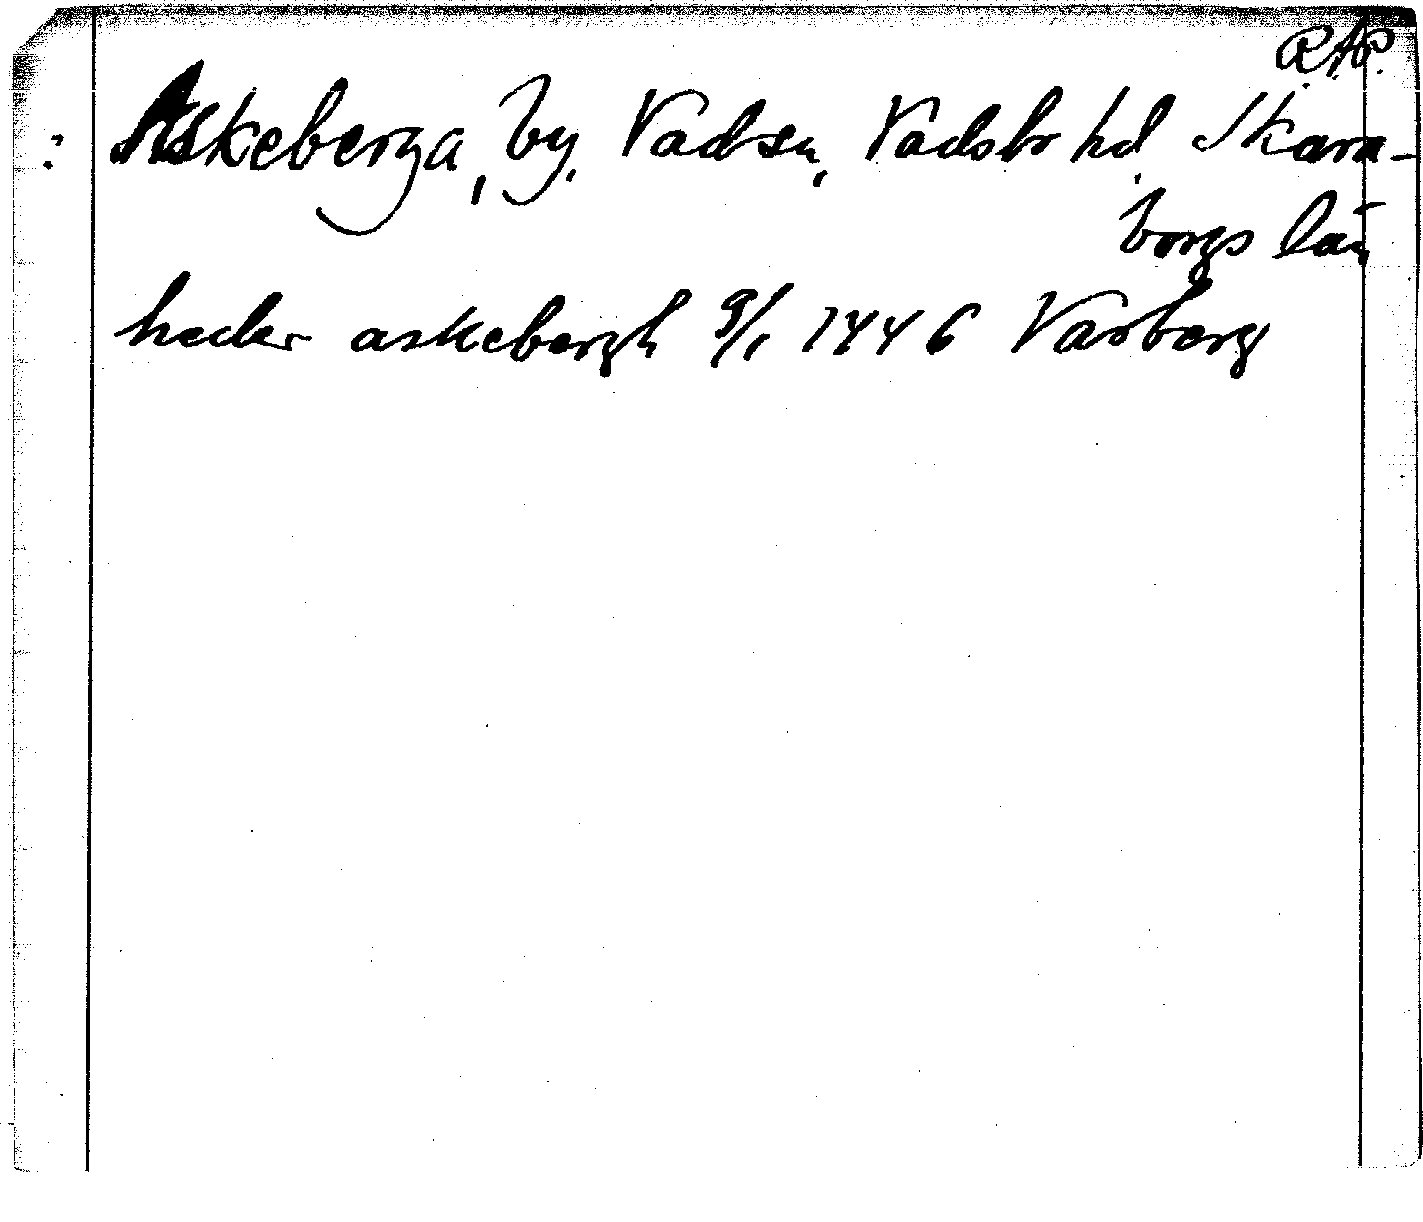 R.A.P.
: Askeberga, by, Vad sn, Vadsbo hd, Skara-
borgs län
heder askebergh 9/1 1446 Varberg